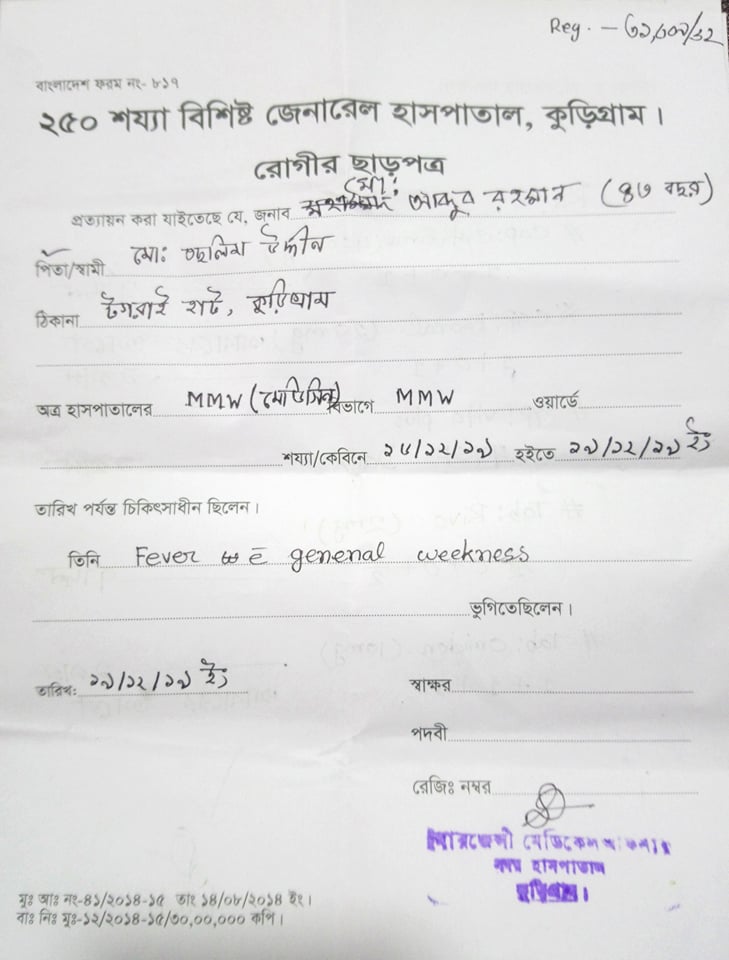 Reg. -
বাংলাদেশ ফরম নং- ৮১৭
২৫০ শয্যা বিশিষ্ট জেনারেল হাসপাতাল, কুড়িগ্রাম।
রোগীর ছাড়পত্র
প্রত্যায়ন করা যাইতেছে যে, জনাব মো: আব্দুর রহমান (৪৭ বছর)
পিতা/স্বামী মো: তছলিম উদ্দীন
ঠিকানা টগরাই হাট, কুড়িগ্রাম
অত্র হাসপাতালের MMW (মেডিসিন) বিভাগে MMW ওয়ার্ডে
শয্যা/কেবিনে ১৫/১২/১৯ হইতে ১৯/১২/১৯ ইং
তারিখ পর্যন্ত চিকিৎসাধীন ছিলেন।
তিনি Fever c̄ general weekness
ভুগিতেছিলেন।
তারিখ: ১৯/১২/১৯ ইং
স্বাক্ষর
পদবী
রেজিঃ নম্বর
মেডিকেল
হাসপাতাল
কুড়িগ্রাম।
মুঃ আঃ নং-৪১/২০১৪-১৫ তাং ১৪/০৮/২০১৪ ইং।
বাঃ নিঃ মুঃ-১২/২০১৪-১৫/৩০,০০,০০০ কপি।